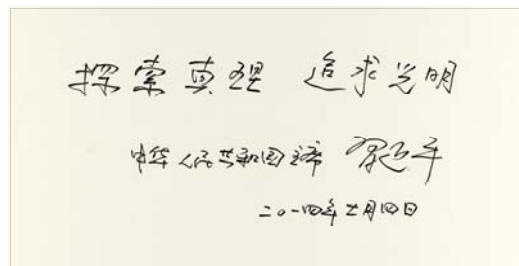 探索真理 追求光明
中华人民共和国主席 习近平
二〇一四年七月四日